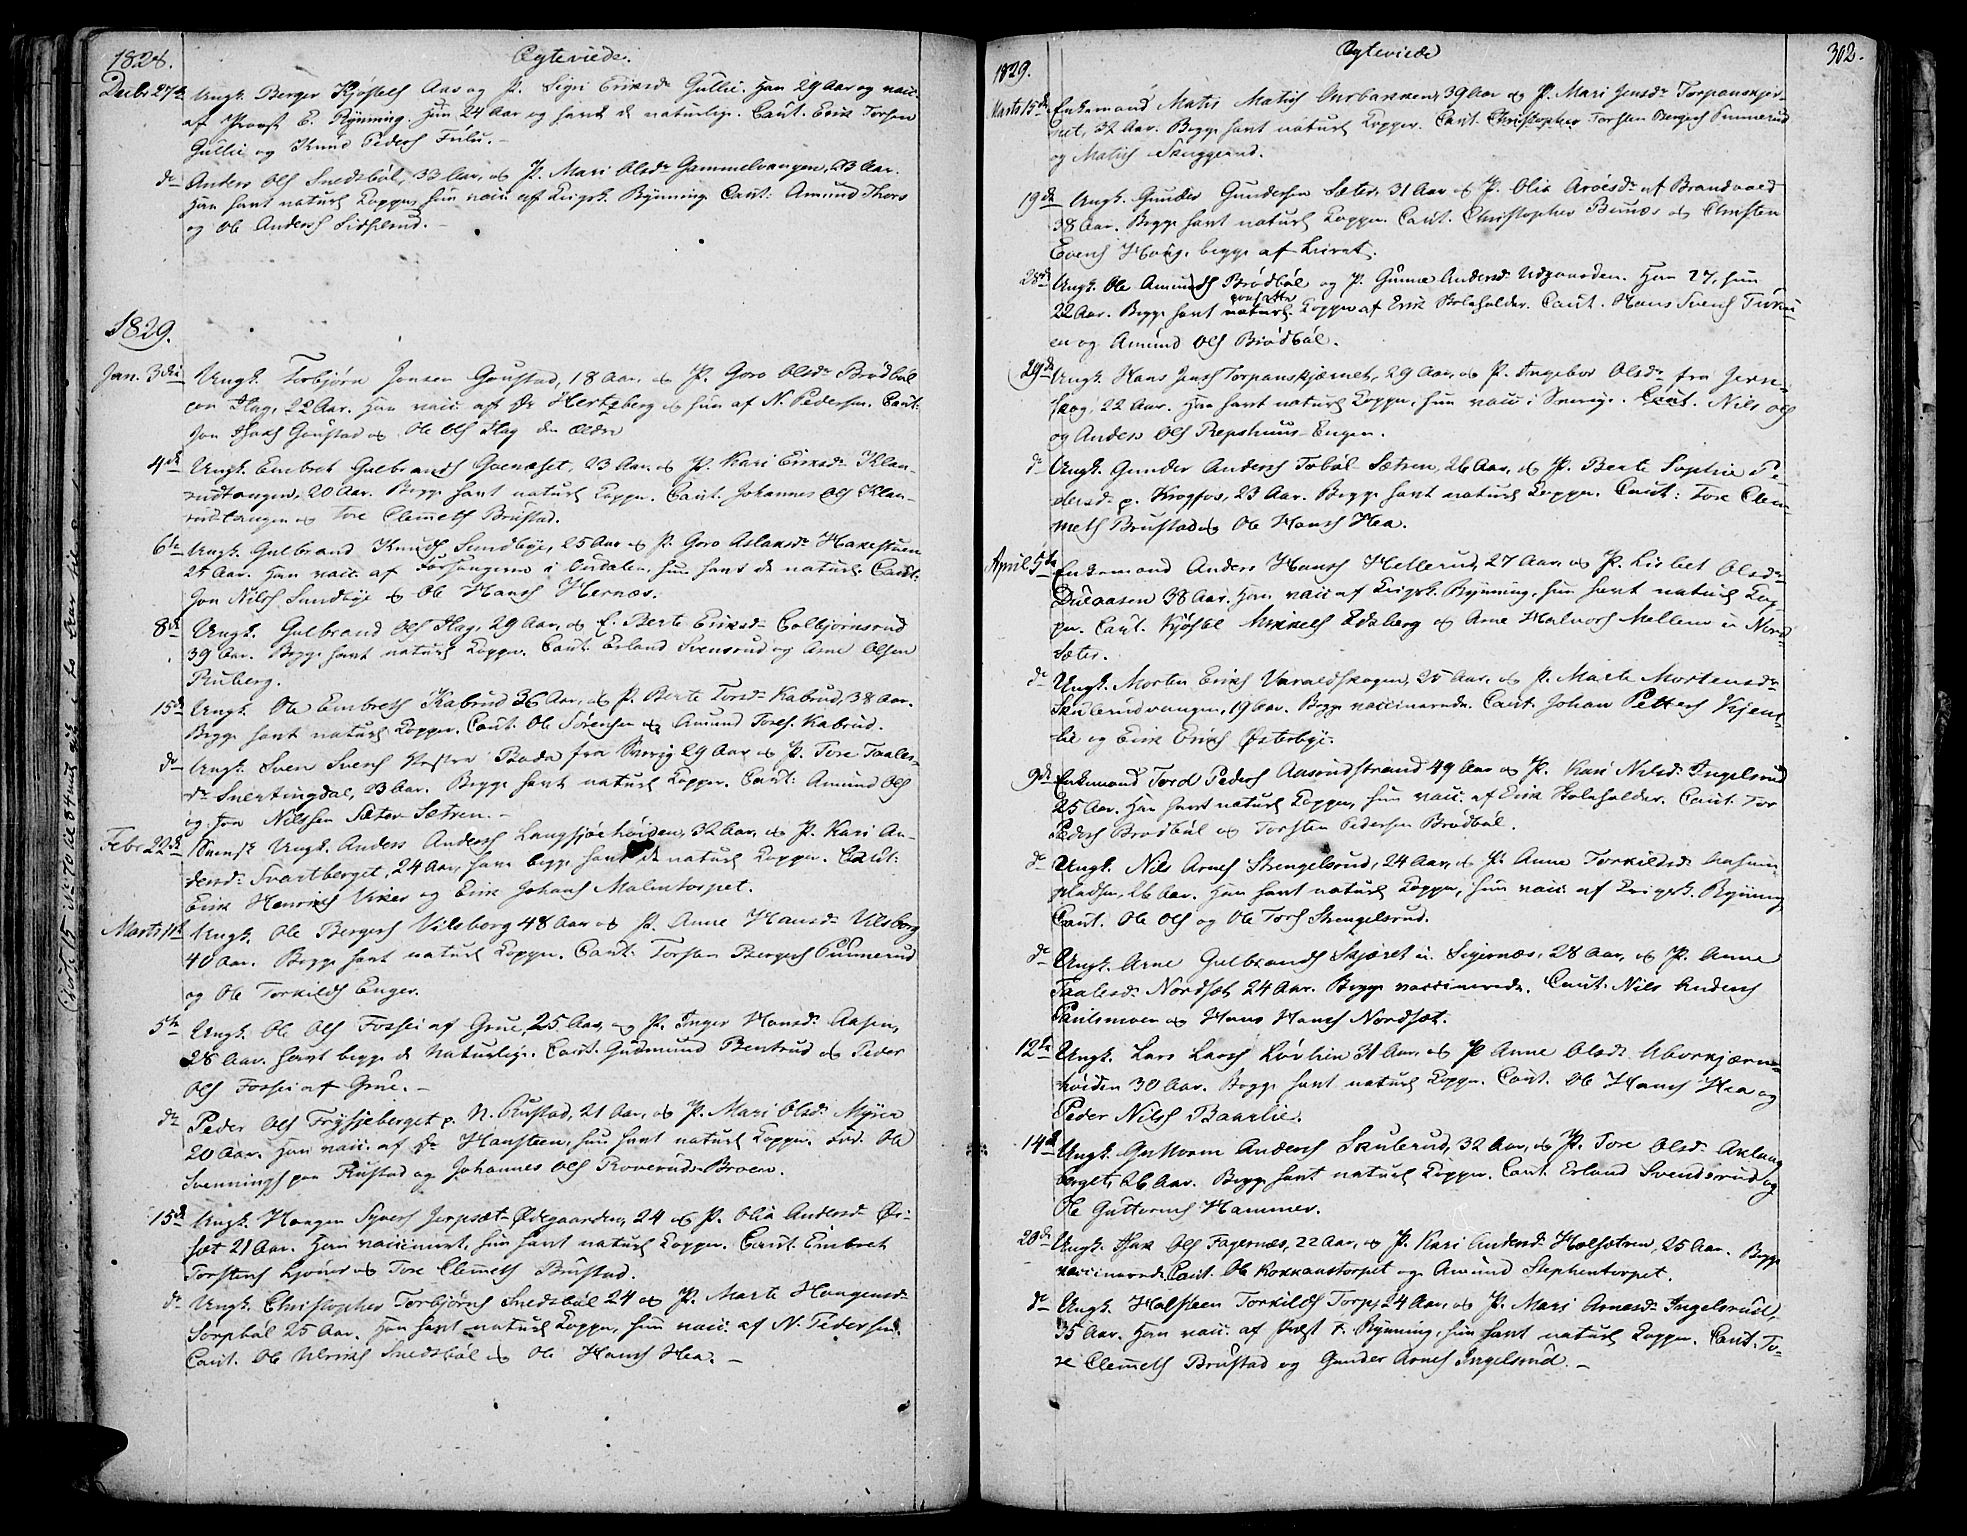 1828.
Ægteviede.
Decbr 27de Ungk. Berger Kjøstels Aas og P. Sigri Eriksdr Gullie. Han 29 Aar og vacc.
af Provst E. Rynning. Hun 24 Aar og havt de naturlige. Caut. Erik Torsen
Gullie og Knud Peders Fulu.
do Anders Ols Snedsbøl, 33 Aar, og P. Mari Olsdr Gammelvangen, 23 Aar.
Han havt naturl. Kopper, hun vacc. af Krigsk. Rynning. Caut. Amund Thors
og Ole Anders Lidserud.
1829.
Jan. 3die Ungk. Torbjørn Jonsen Goustad, 18 Aar, og P. Goro Olsdr Brødbøl
paa Hag, 22 Aar. Han vacc. af Dr Hertzberg og hun af N. Pedersen. Caut.
Jon Goustad og Ole Ols Hag den ældre
4de Ungk. Embret Gulbrands Goenæset, 23 Aar, og P. Kari Eriksdr Klan-
rudtangen, 20 Aar. Begge havt naturl. Kopper. Caut. Johannes Ols Klan-
rudtangen og Tore Clemets Brustad.
6te Ungk. Gulbrand Knuds Sundbye, 25 Aar og P. Goro Aslaksdr Hakestuen
25 Aar. Han vacc. af Forsangeren i Ourdalen, hun havt de naturl. Caut.
Jon Nils Sundbye og Ole Hans Hernæs.
8de Ungk. Gulbrand Ols Hag, 29 Aar, og P. Berte Eriksdr Colbjørnsrud
39 Aar. Begge havt naturl. Kopper. Caut. Erland Svensrud og Arne Olsen
Ruberg.
15de Ungk. Ole Embrets Kabrud 36 Aar, og P. Berte Torsdr Kabrud, 38 Aar.
Begge havt naturl. Kopper. Caut. Ole Sørensen og Amund Tores. Kabrud.
do Ungk. Sven Svens Boda fra Sverig 29 Aar og P. Tore Taales-
dr Snertingdal, 23 Aar. Begge havt naturl. Kopper. Caut. Amund Ols
og Jon Nilssen Sæter-Sætren.
Febr 22de Svensk Ungk. Anders Anders Langsjøehøiden, 32 Aar, og P. Kari An-
dersdr Svartberget, 24 Aar, have begge havt de naturl. Kopper. Caut:
Erik Henriks Viker og Erik Johans Malmtorpet.
Marts 1ste Ungk. Ole Bergers Vilsborg 48 Aar og P. Anne Hansdr Vilsborg
40 Aar. Begge havt naturl. Kopper. Caut: Torsten Bergers Pumerud
og Ole Torkilds Enger.
5te Ungk. Ole Ols Fossei af Grue, 25 Aar, og P. Inger Hansdr Aasen,
28 Aar. havt begge de naturlige. Caut. Gudmund Bentrud og Peder
Ols Fossei af Grue.
do Peder Ols Frysjeberget p. N. Rustad, 21 Aar, og P. Mari Olsdr Myren
20 Aar. Han vacc. af Dr Hansteen, hun havt naturl. Kopper. Ole
Svennings paa Rustad og Johannes Ols Roverud-Broen.
15de Ungk. Haagen Syvers Jerpsæt-Ødegaarden, 24 og P. Olia Andersdr Ør-
sæt 21 Aar. Han vaccineret, hun havt naturl. Kopper. Caut. Embret
Torstens Ljøner og Tore Clemets Brustad.
do Ungk. Christopher Torbjørns Snedsbøl 24 og P. Marte Haagensdr
Sorpbøl 25 Aar. Han havt naturl. Kopper, hun vacc. af N. Pedersen.
Caut. Ole Ulriks Snedsbøl og Ole Hans Hea.
1829.
Ægteviede
302.
Marts 15de Enkemand Matis Matis Aurbakken, 39 Aar og P. Mari Jensdr Torpanskjer-
net, 32 Aar. Begge havt naturl. Kopper. Caut. Christopher Torsten Bergers Pumerud
og Matis Skuggerud.
19de Ungk. Gunder Gundersen Sæter, 31 Aar og P. Olia Aroesdr af Brandvold
38 Aar. Begge havt naturl. Kopper. Caut. Christopher Bunæs og Christen
Evens Houg, begge af Luret.
28de Ungk. Ole Amunds Brødbøl og P. Gunne Andersdr Udgaarden. Han 27, hun
22 Aar. Begge havt naturl. Kopper af Erik Boleholder. Caut. Hans Svens
en og Amund Ols Brødbøl.
29de Ungk. Hans Jens Torpanskjærnet, 29 Aar, og P. Ingebor Olsdr fra Jern-
skog 22 Aar. Han havt naturl. Kopper, hun vacc. i Sverige. Caut. Nils Ols
og Anders Ols Repshuus-Engen.
do Ungk. Gunder Anders Tobøl-Sætren, 26 Aar, og P. Berte Sophie Pe-
dersdr p. Krogfos, 23 Aar. Begge havt naturl. Kopper. Caut: Tore Clem-
mets Brustad og Ole Hans Hea.
April 5te Enkemand Anders Hans Hellerud, 27 Aar, og P. Lisbet Olsdr
Dulaasen 38 Aar. Han vacc. af Krigsk. Rynning, hun havt naturl. Kop-
per. Caut. Kjøstel Mikkels Edsberg og Arne Halvors Mellem- Nord-
Sæter.
do Ungk. Morten Eriks Varaldskogen, 25 Aar, og P. Marte Mortensdr
Skulerudvangen, 19 Aar. Begge vaccinerede. Caut. Johan Petters Kjens-
lie og Erik Eriks Østerbye.
9de Enkemand Tord Peders Aasrudstrand 49 Aar og P. Kari Nilsdr Ingelsrud
25 Aar. Han havt naturl. Kopper, hun vacc. af Erik Boleholder. Caut. Tor
Peders Brødbøl og Torsten Pedersen Brødbøl.
do Ungk. Nils Arnes Strengelsrud, 24 Aar, og P. Anne Torkildsdr Aasen-
pladsen, 26 Aar. Han havt naturl. Kopper, hun vacc. af Krigsk. Rynning
Caut. Ole Ols og Ole Tors Strengelsrud.
do Ungk. Arne Gulbrands Skjæret u. Sigernæs, 28 Aar, og P. Anne
Taalesdr Nordsæt 24 Aar. Begge vaccinerede. Caut. Nils Anders
Paulsmoen og Hans Hans Nordsæt.
12te Ungk. Lars Lars Løvlien 31 Aar, og P. Anne Olsdr Aborkjærn-
høiden 30 Aar. Begge havt naturl. Kopper. Caut. Ole Hans Hea og
Peder Nils Baarlie.
14de Ungk. Guttorm Anders Skulerud, 32 Aar, og P. Tore Olsdr Aklang-
berget, 26 Aar. Begge havt naturl. Kopper. Caut. Erland Svendsrud og
Ole Guttorms Hammer.
20de Ungk. Isak Ols Fagernæs, 22 Aar, og P. Kari Andersdr Holsætren, 25 Aar. Begge
vaccinerede. Caut. Ole Kokkaastorpet og Amund Stephentorpet.
do Ungk. Halsteen Torkilds Torp, 24 Aar, og P. Mari Arnesdr Ingelsrud,
35 Aar. Han vacc. af Præst F. Rynning, hun havt naturl. Kopper. Caut. To-
re Clemets Brustad og Gunder Arnes Ingelsrud.